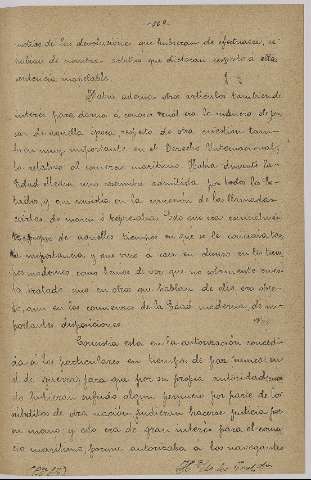 -302-
noticia de las devoluciones que hubieran de efectuarse, re-
sultado de nuestra que dictaran respecto a ella
sentencia inapelable.
Había además otros artículos también de
interés para darnos a conocer cual era la manera de pen-
sar de aquella época respecto de otra cuestión tam-
bien muy importante en el Derecho Internacional,
la relativa al comercio marítimo. Había durante la
Edad Media una costumbre admitida por todos los Es-
tados, y que consistía en la concesión de las llamadas
cartas de marca ó represalias. Esto que era
de aquellos tiempos en que se le concedía tan-
ta importancia y que vino a caer en desuso en los tiem-
pos modernos como hemos de ver que no solamente en es-
te tratado sino en otros que hablan de ello era obje-
to, aun en los comienzos de la Edad moderna, de im-
portantes disposiciones.
Consistía esta en la autorización concedi-
da a los particulares en tiempo de paz nunca en
el de guerra, para que por su propia autoridad, cuan-
do hubieran sufrido algún perjuicio por parte de los
súbditos de otra nación pudieran hacerse justicia por
su mano y esto era de gran interés para el comer-
cio marítimo, porque autorizaba a los navegantes
Hª de los Trat